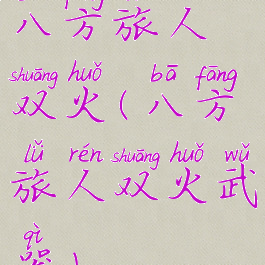 八方旅人
shuāng huǒ bā fāng
双火(八方
lǚ rén shuāng huǒ wǔ
旅人双火武
qì
器)